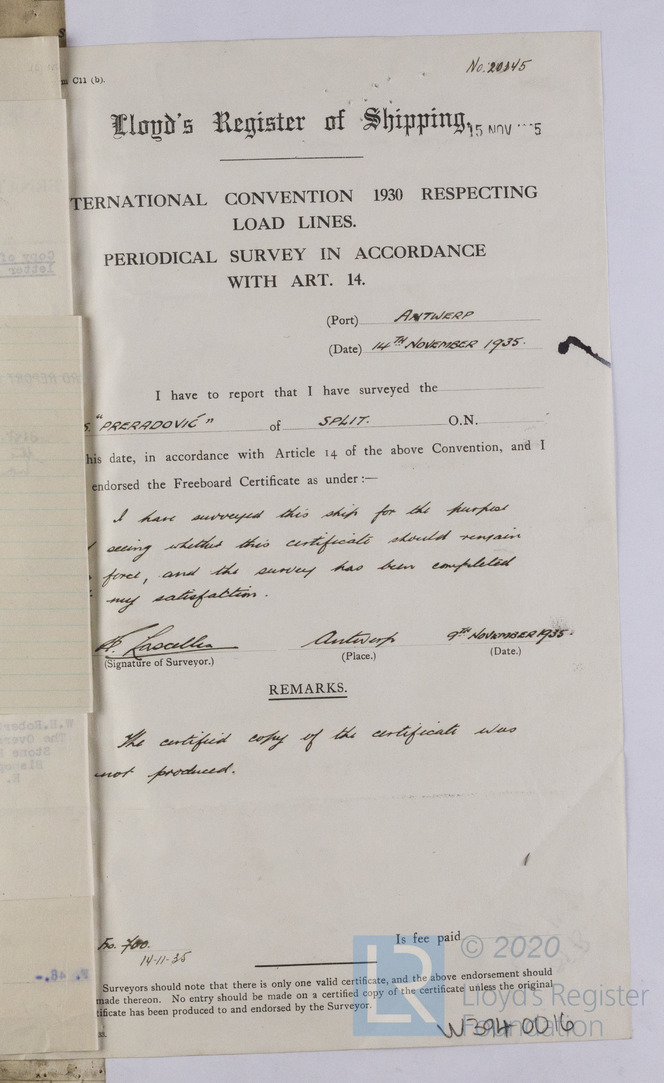 No. 20345
C11 (b).
Lloyd's Register of Shipping,
15 NOV
TERNATIONAL CONVENTION 1930 RESPECTING
LOAD LINES.
PERIODICAL SURVEY IN ACCORDANCE
WITH ART. 14.
(Port) ANTWERP
(Date) 14TH NOVEMBER 1935.
I have to report that I have surveyed the
S. "PRERADOVIĆ" of SPLIT. O.N.
his date, in accordance with Article 14 of the above Convention, and I
endorsed the Freeboard Certificate as under :—
I have surveyed this ship for the purpose
seeing whether this certificate should remain
force, and the survey has been completed
my satisfaction.
Lascelles Antwerp 9TH NOVEMBER 1935.
(Signature of Surveyor.) (Place.) (Date.)
REMARKS.
The certified copy of the certificate was
not produced.
Frs. 700.
14-11-35
Is fee paid
Surveyors should note that there is only one valid certificate, and the above endorsement should
made thereon. No entry should be made on a certified copy of the certificate unless the original
tificate has been produced to and endorsed by the Surveyor.
© 2020
Lloyd's Register
Foundation
W394-0016